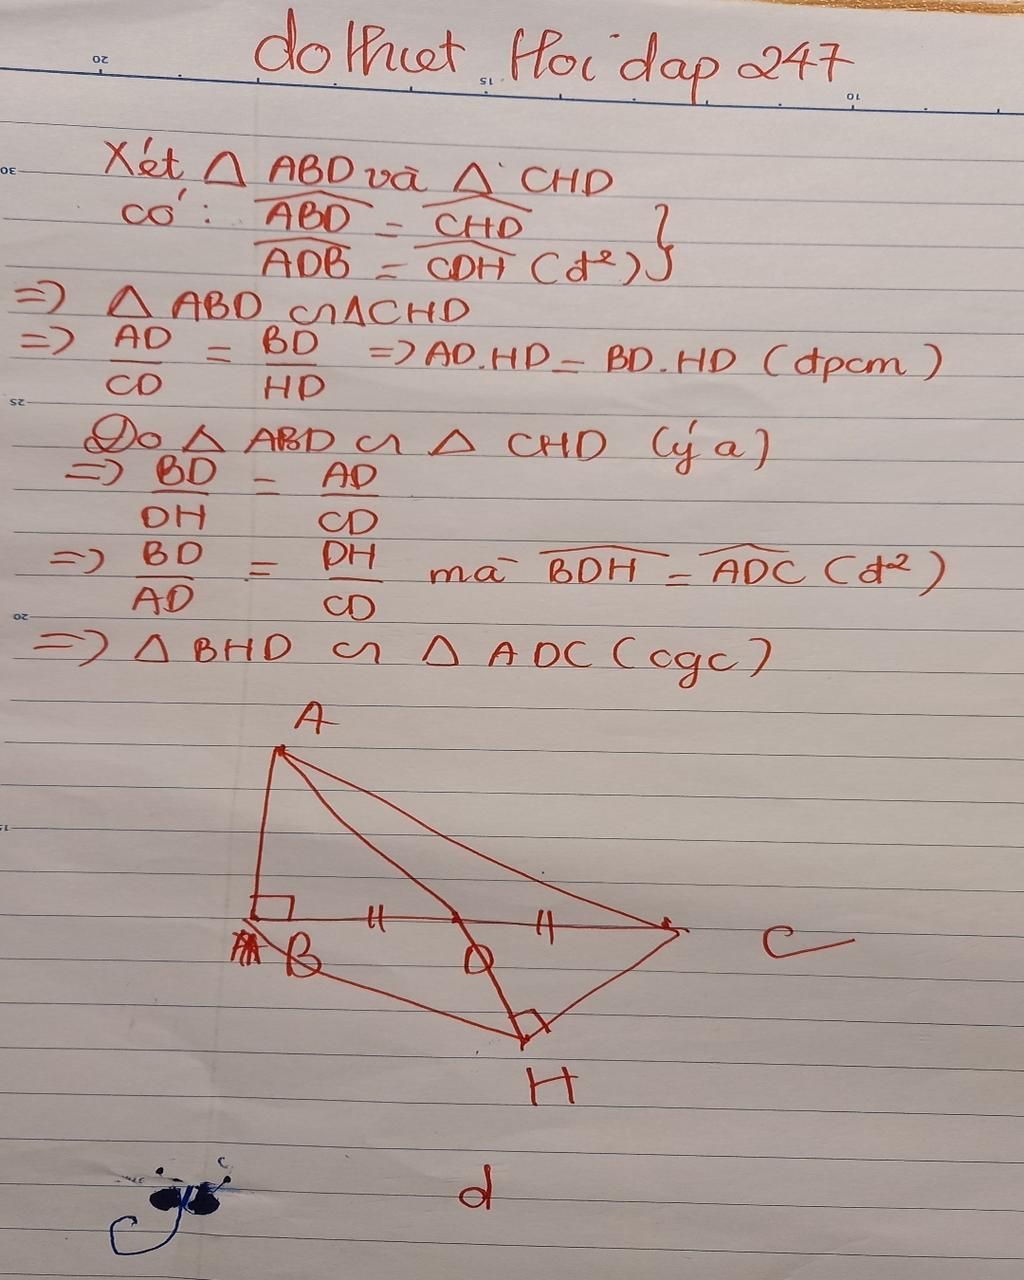 dothuet Hoi dap 247
20
15
10
Xét △ ABD và △ CHD
30
có: \widehat{ABD} = \widehat{CHD}
\widehat{ADB} = \widehat{CDH} (đ²) }
=> △ ABD ∽ △CHD
=> AD/CD = BD/HD => AD.HD = BD.HD (dpcm)
25
Do △ ABD ∽ △ CHD (ý a)
=> BD/DH = AD/CD
=> BD/AD = DH/CD mà \widehat{BDH} = \widehat{ADC} (đ²)
20
=> △ BHD ∽ △ ADC (cgc)
A
B
D
C
H
d